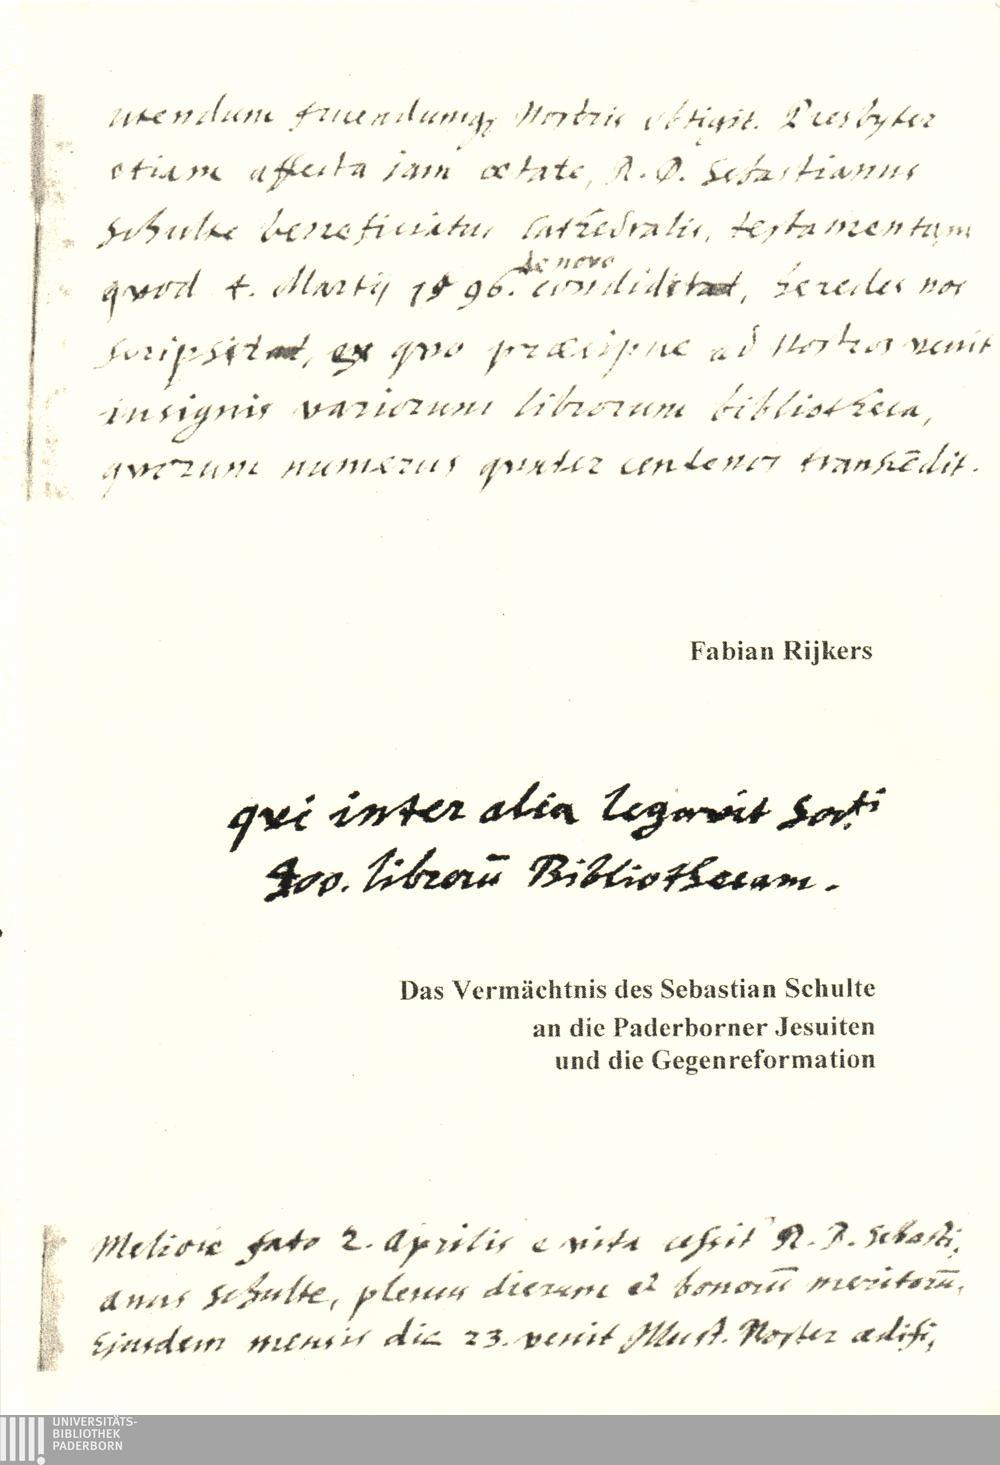 utendum fruendumq; Nostris obtigit. Presbyter
etiam affecta jam ætate, R. D. Sebastianus
Schulte beneficiatus Cathedralis, testamentum
de novo
quod 4. Martij 1596. condidit, heredes nos
scripsit, ex quo præcipue ad Nostros venit
insignis variorum librorum bibliotheca,
quorum numerus quater centenos transcēdit.
Fabian Rijkers
qui inter alia legavit Soc.ti
400. librorū Bibliothecam.
Das Vermächtnis des Sebastian Schulte
an die Paderborner Jesuiten
und die Gegenreformation
Meliore fato 2. Aprilis e vita cessit R. D. Sebasti,
anus Schulte, plenus dierum et bonorū meritorū,
Ejusdem mensis die 23. venit Illust. Noster ædifi,
UNIVERSITÄTS-
BIBLIOTHEK
PADERBORN